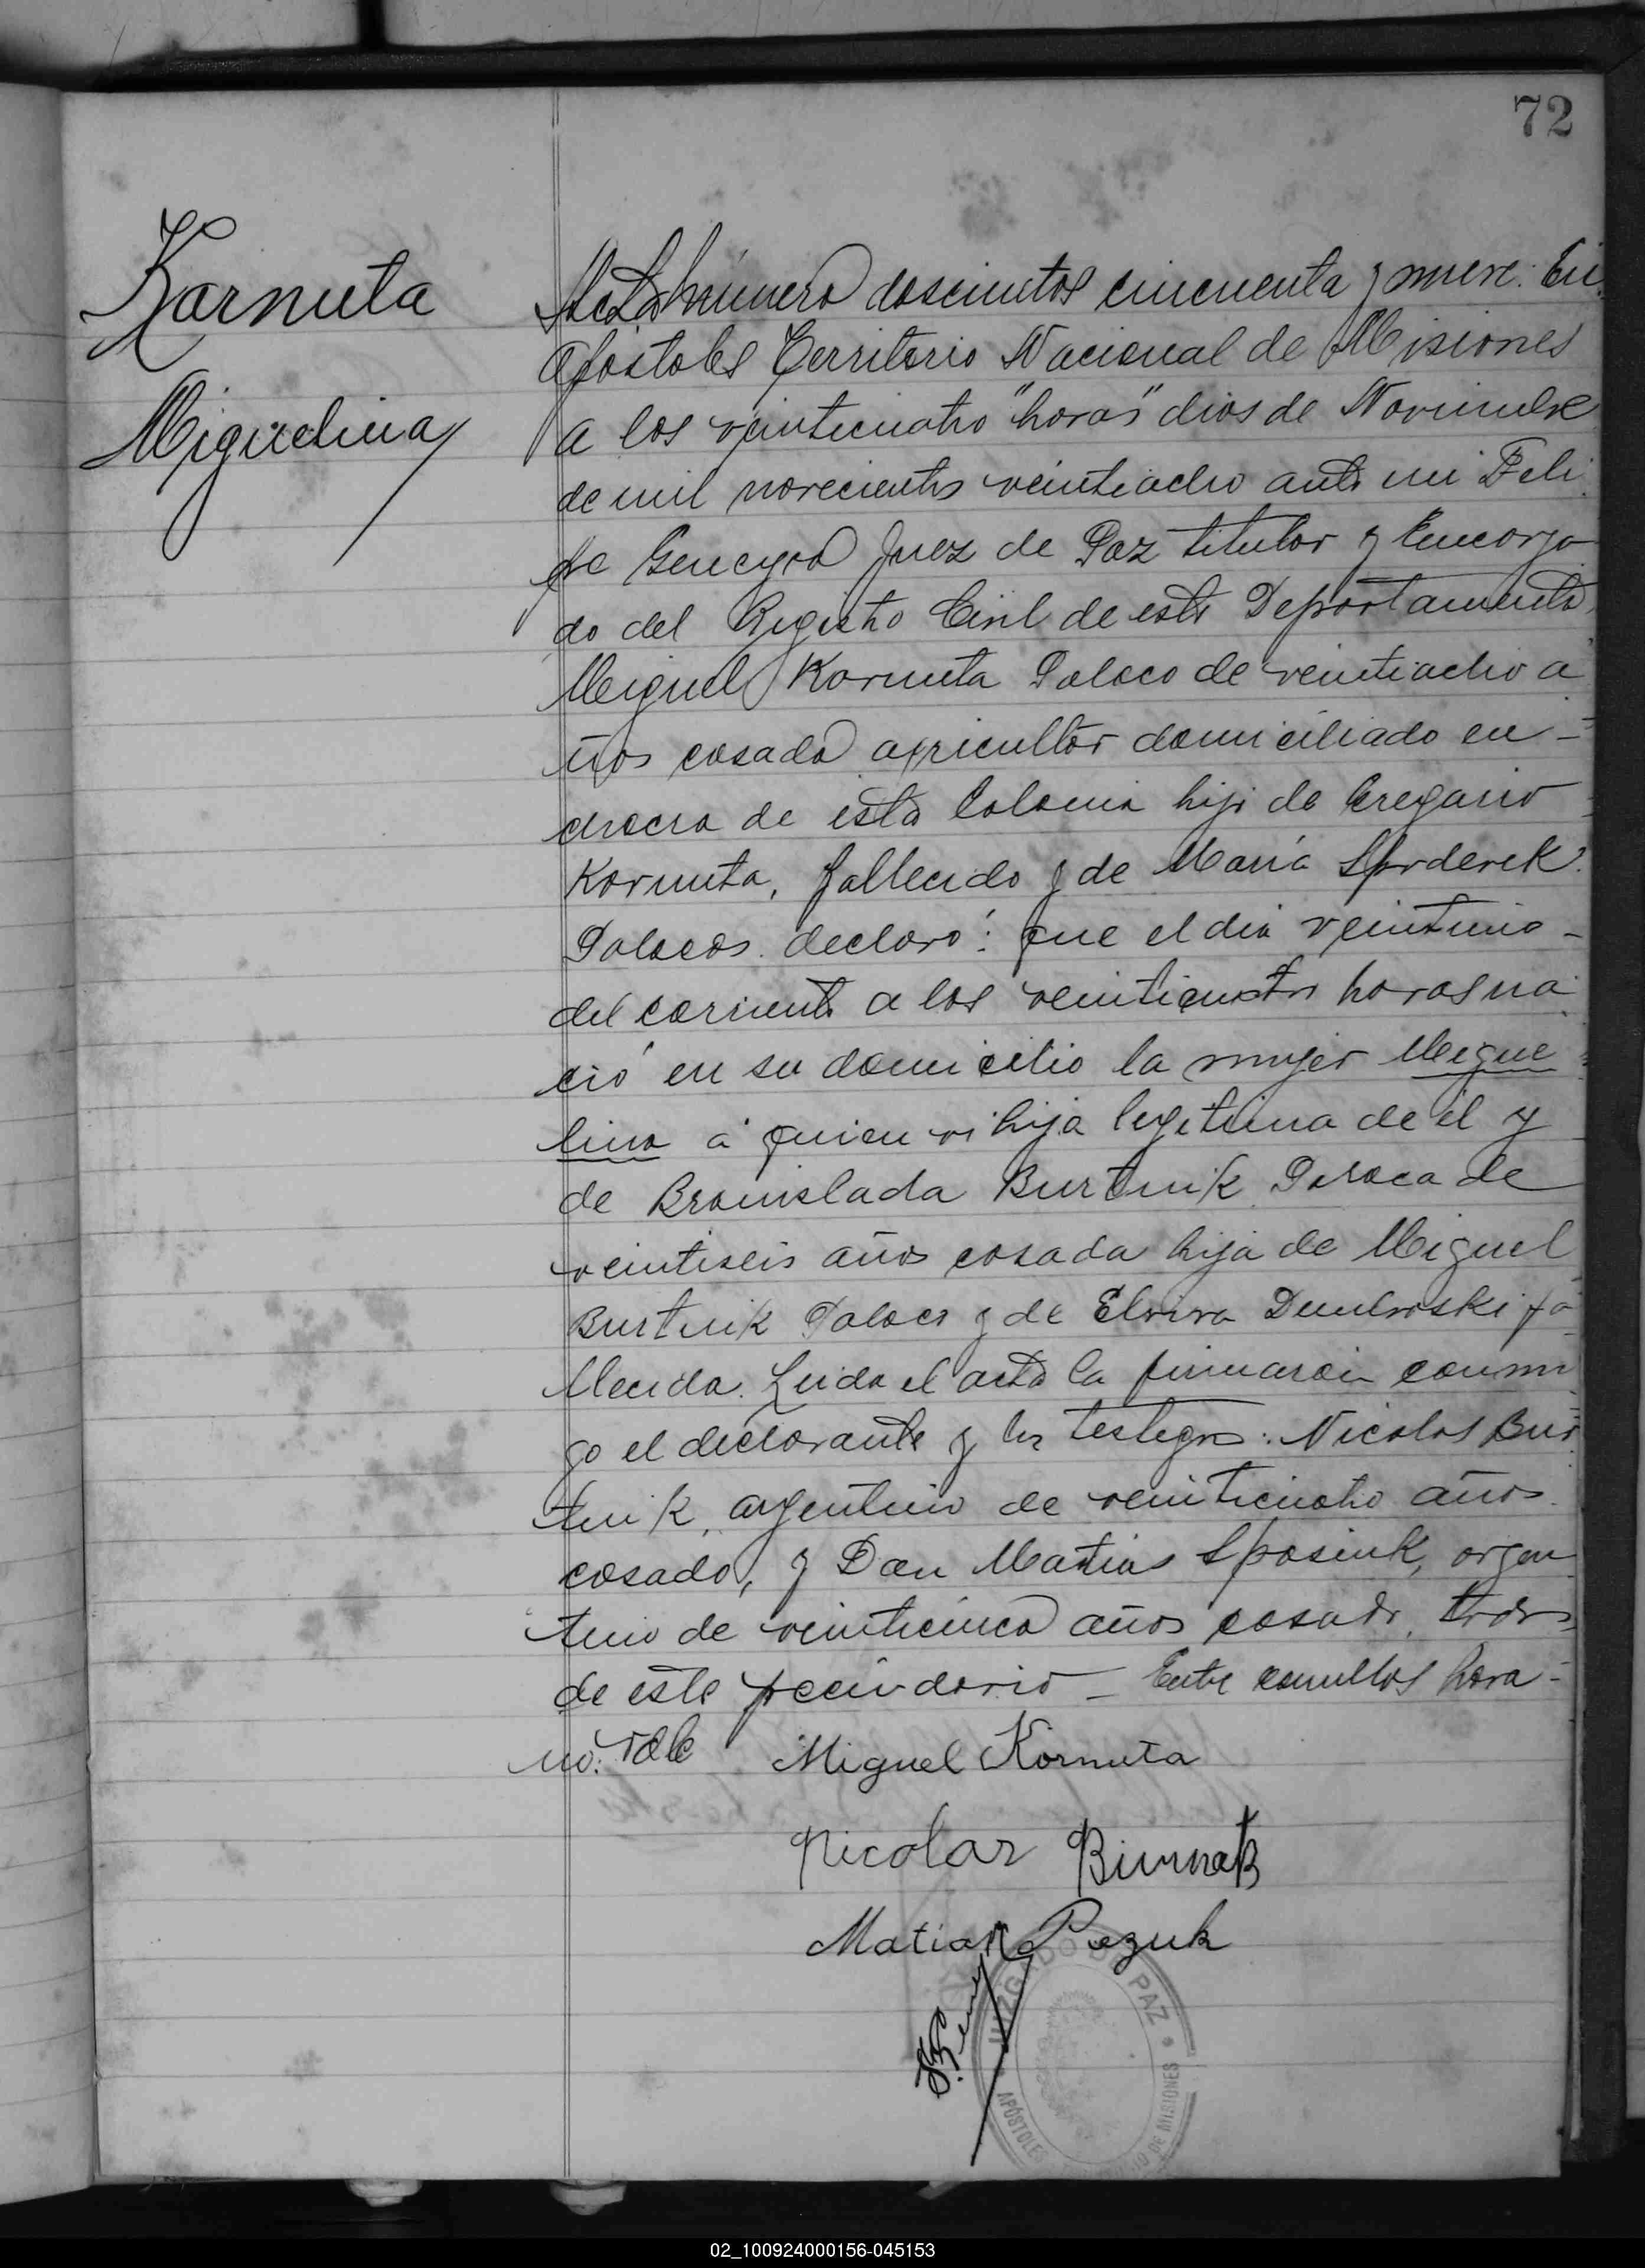 72
Karnuta
Miguelina
Acta número doscientos cincuenta y nueve. En
Apóstoles Territorio Nacional de Misiones
a los veinticuatro "horas" dias de Noviembre
de mil novecientos veintiocho ante mi Feli
pe Juez de Paz titular y Encarga
do del Registro Civil de este Departamento,
Miguel Kornuta Polaco de veintiocho a
ños casado agricultor domiciliado en -
chacra de esta Colonia hijo de Gregorio
Kornuta, fallecido y de María
Polacos. declaró: que el dia veintiuno -
del corriente a las veinticuatro horas na
ció en su domicilio la mujer Migue
lina á quien vi hija legitima de él y
de Bronislada Burtnik Polaca de
veintiseis años casada hija de Miguel
Burtnik Polaco y de Elvira Dembroski fa
llecida. Leida el acta la firmaron conmi
go el declarante y los testigos: Nicolas Bur
tnik, argentino de veinticuatro años
casado, y Don Matias Sposiuk, argen
tino de veinticinco años casado, todos
de este vecindario - Entre comillas hora -
no: vale Miguel Kornuta
Nicolas
Matias Pozuk
JUZGADO DE PAZ
APÓSTOLES DE MISIONES
02_100924000156-045153